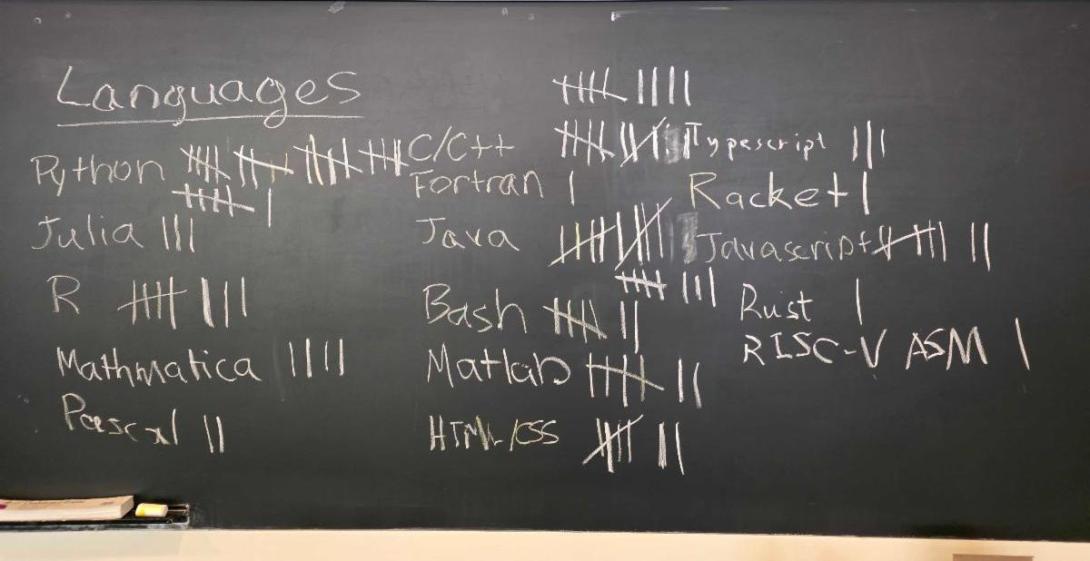 Languages
Python
Julia
R
Mathmatica
Pascal
C/C++
Fortran
Java
Bash
Matlab
HTML/CSS
Typescript
Racket
Javascript
Rust
RISC-V ASM